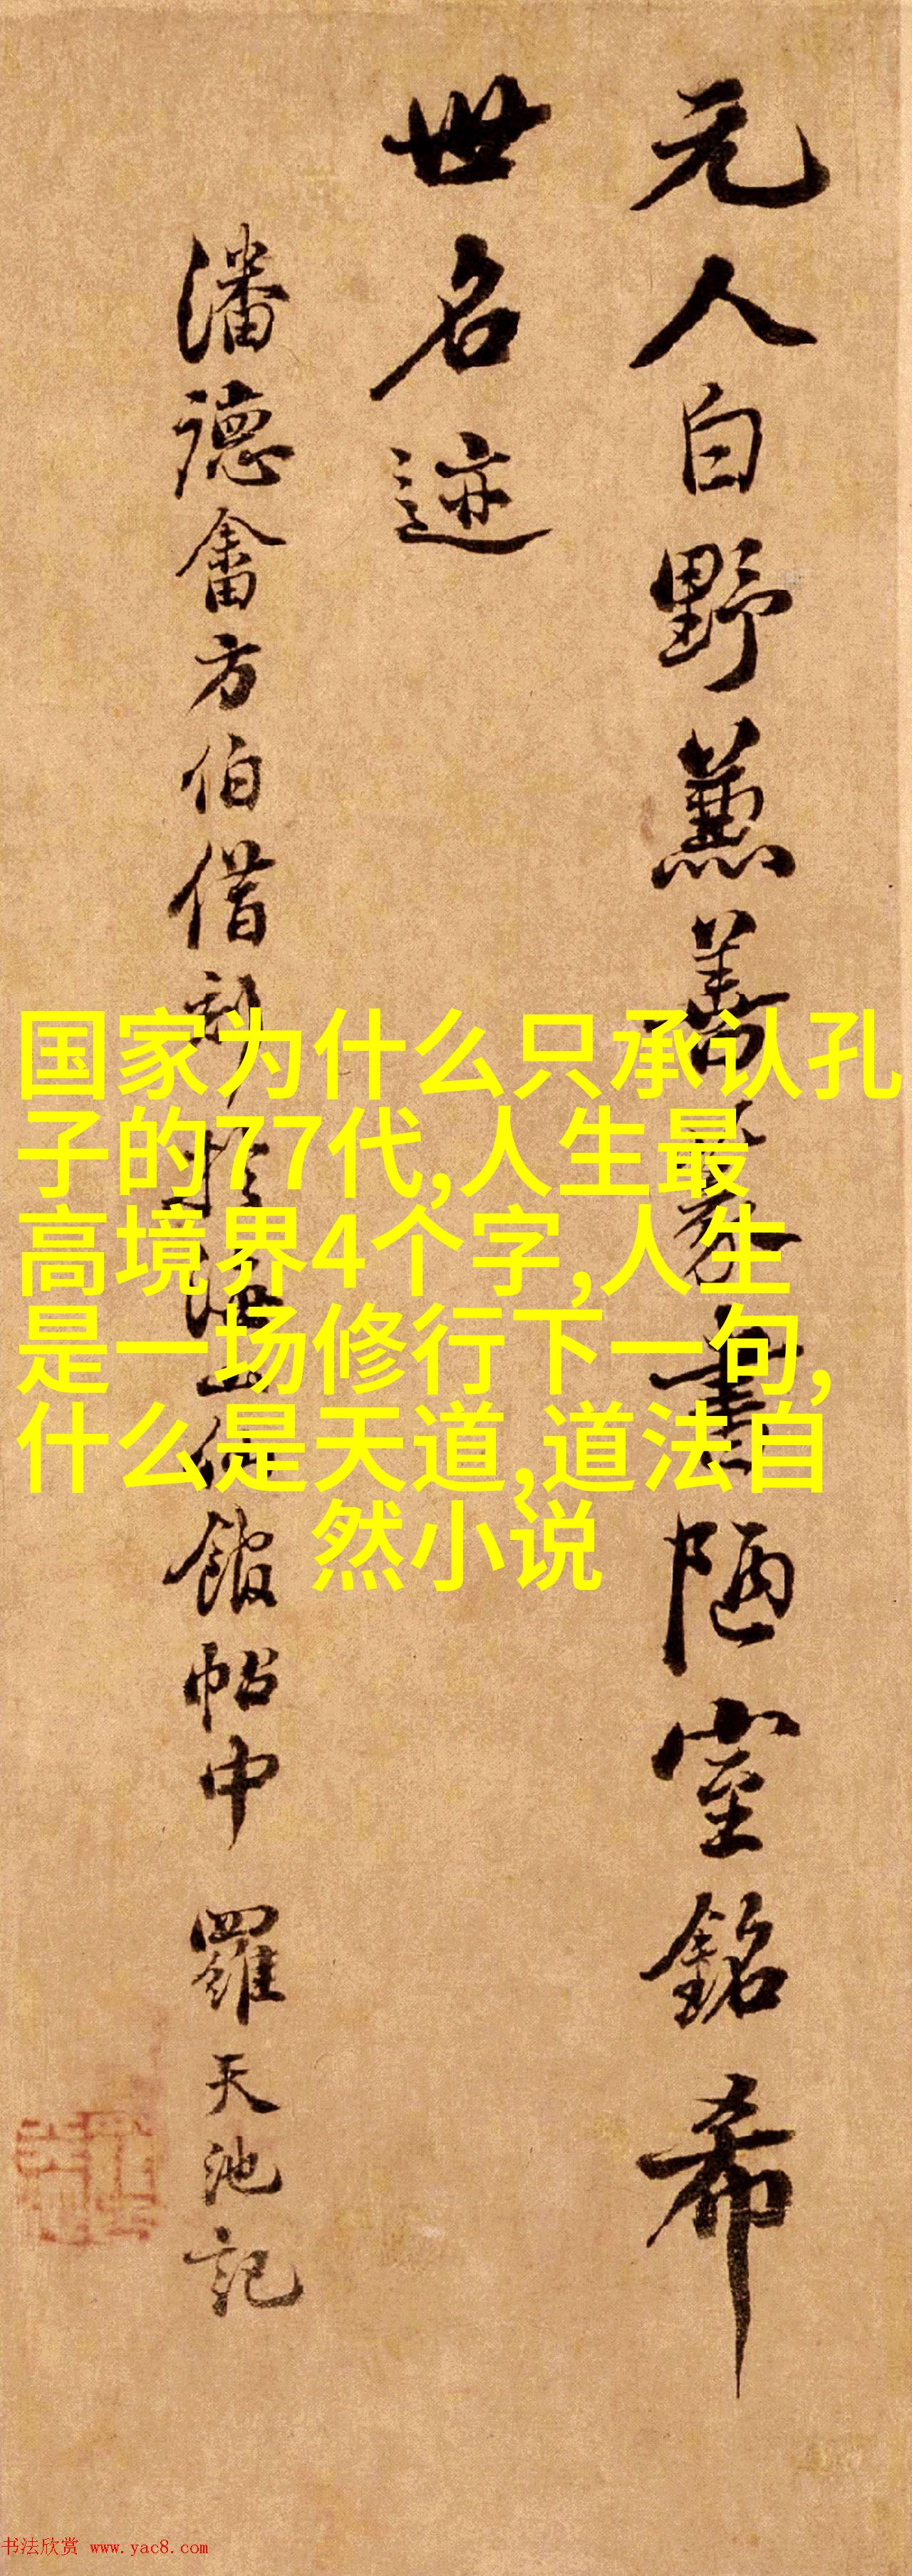 元人白野兼善篆書陋室銘希
世名迹
潘德畬方伯借刻於海山仙館帖中 羅天池記
国家为什么只承认孔
子的77代,人生最
高境界4个字,人生
是一场修行下一句,
什么是天道,道法自
然小说
书法欣赏 www.yac8.com